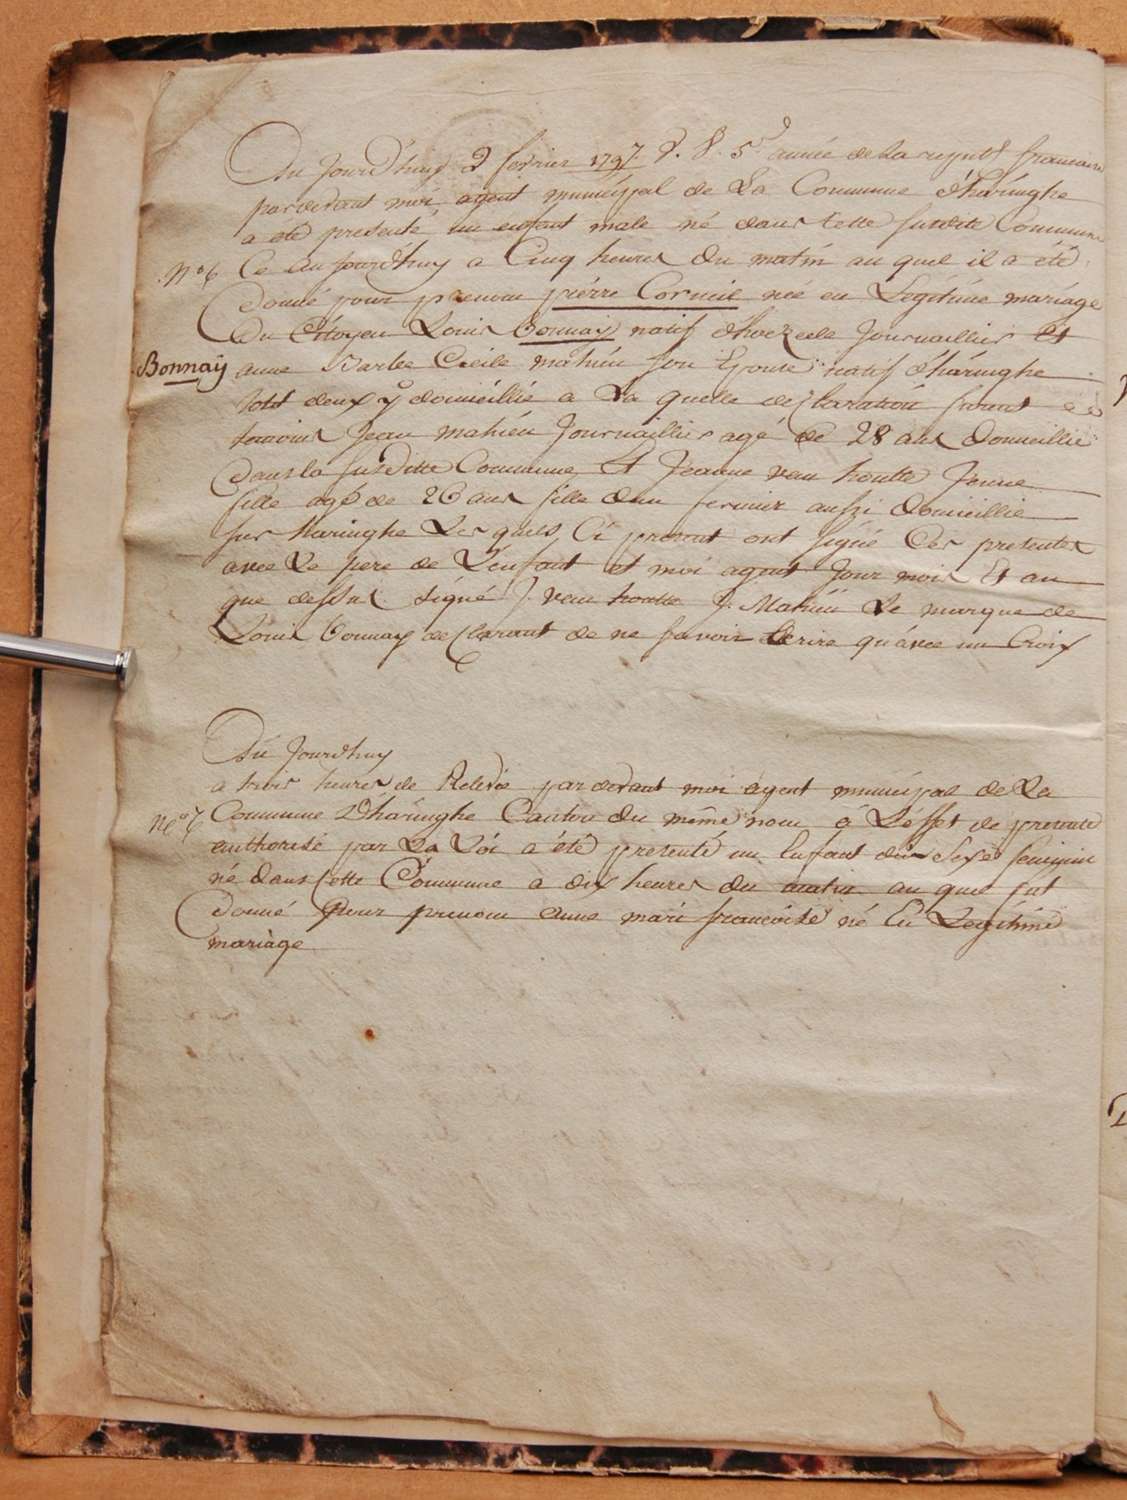 Au Jourd'huy 2 fevrier 1797. V. S. 5e année de la republ francaise
pardevant moi agent municipal de La Commune d'haringhe
a été presenté un enfant male né dans Cette susditte Commune
No 6 Ce au jourd'huy a Cinq heures du matin au quel il a été
donné pour prenom pierre Corneil née en Legitime mariage
du Citoyen Louis Bonnaÿ natif d'hoezeele Journaillier Et
Bonnaÿ anne Barbe Cecile mahieu son Epouse natif d'haringhe
tout deux y domicillié a La quelle desclaration furent
temoins Jean mahieu Journaillier agé de 28 ans domicillié
dans la susditte Commune, Et Jeanne van houtte Jeune
fille agé de 26 ans fille dun fermier aussi domicillié
sur haringhe Les quels, Ci present ont signé Ces presentes
avec Le pere de L'enfant et moi agent Jour mois Et an
que dessus. signé J. van houtte J. Mahieu Le marque de
Louis Bonnay desclarant de ne savoir Ecrire qu'avec un Croix
Au Jourd'huy
a trois heures de Relevée pardevant moi agent municipal de La
No 7 Commune D'haringhe Canton du même nom a L'effet de presente
authorisé par La Loi a été presenté un Enfant du Sexe feminin
né dans Cette Commune a dix heures du matin au quel fut
donné Pour prenom anne mari francoise né En Legitime
mariage